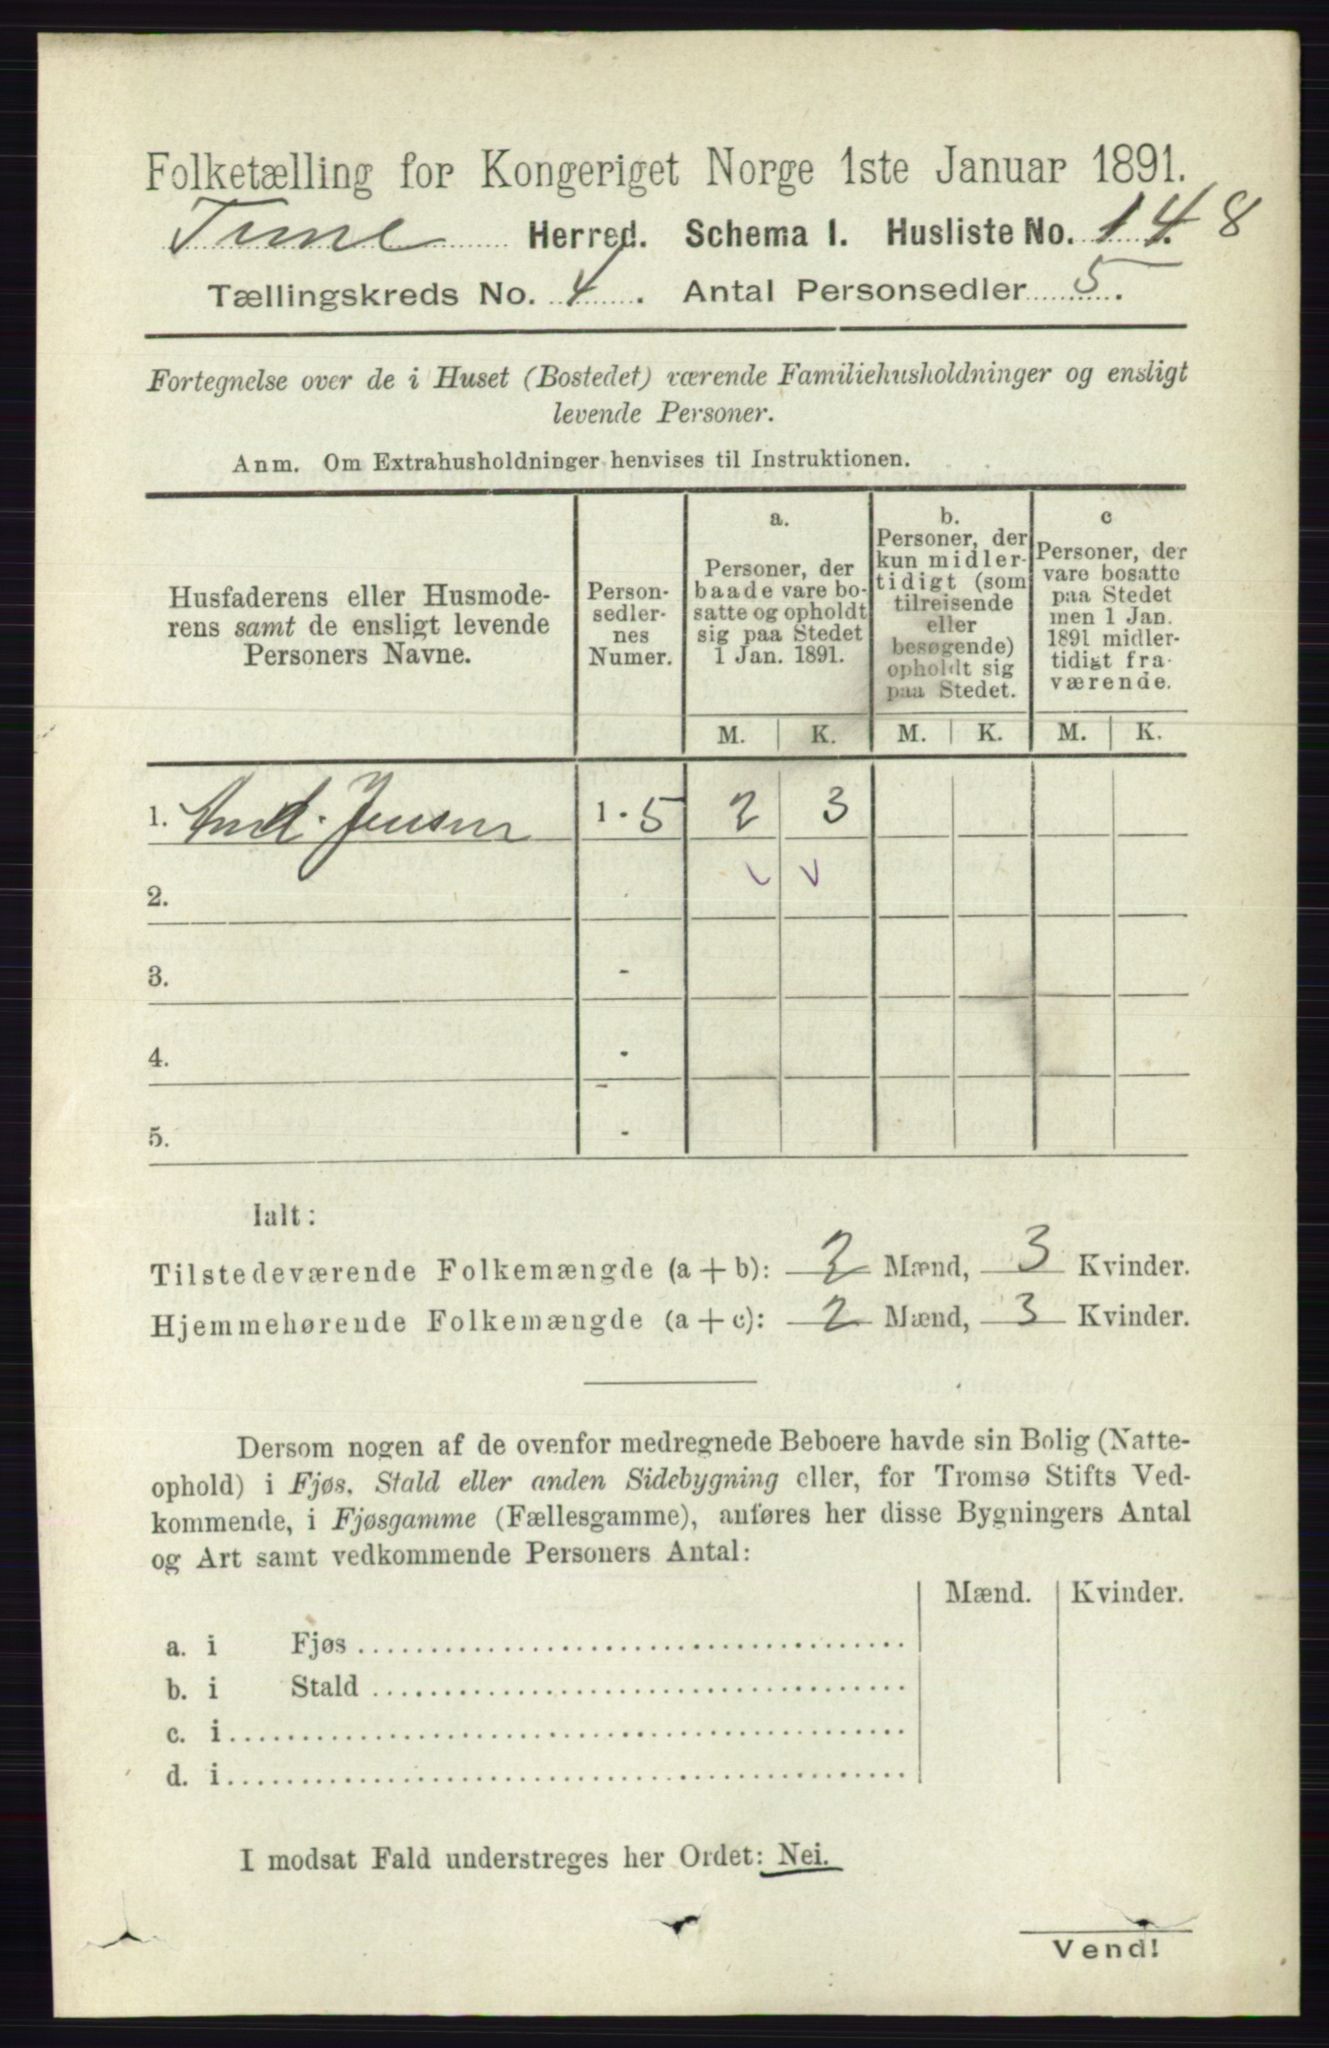 Folketælling for Kongeriget Norge 1ste Januar 1891.
Tune Herred. Schema I. Husliste No. 148
Tællingskreds No. 4. Antal Personsedler 5.
Fortegnelse over de i Huset (Bostedet) værende Familiehusholdninger og ensligt
levende Personer.
Anm. Om Extrahusholdninger henvises til Instruktionen.
Husfaderens eller Husmode-
rens samt de ensligt levende
Personers Navne.
Person-
sedler-
nes
Numer.
a.
Personer, der
baade vare bo-
satte og opholdt
sig paa Stedet
1 Jan. 1891.
b.
Personer, der
kun midler-
tidigt (som
tilreisende
eller
besøgende)
opholdt sig
paa Stedet.
c
Personer, der
vare bosatte
paa Stedet
men 1 Jan.
1891 midler-
tidigt fra-
værende.
M. K. M. K. M. K.
1. And. Jensen 1 - 5 2 3
2. -
3. -
4. -
5. -
Ialt:
Tilstedeværende Folkemængde (a + b): 2 Mænd, 3 Kvinder.
Hjemmehørende Folkemængde (a + c): 2 Mænd, 3 Kvinder.
Dersom nogen af de ovenfor medregnede Beboere havde sin Bolig (Natte-
ophold) i Fjøs, Stald eller anden Sidebygning eller, for Tromsø Stifts Ved-
kommende, i Fjøsgamme (Fællesgamme), anføres her disse Bygningers Antal
og Art samt vedkommende Personers Antal:
Mænd. Kvinder.
a. i Fjøs
b. i Stald
c. i
d. i
I modsat Fald understreges her Ordet: Nei.
Vend!